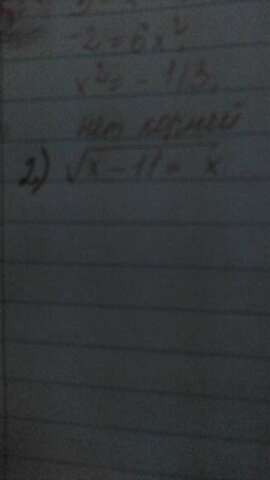 -2=6x²,
x²=-1/3,
нет корней
2) √x-11= x